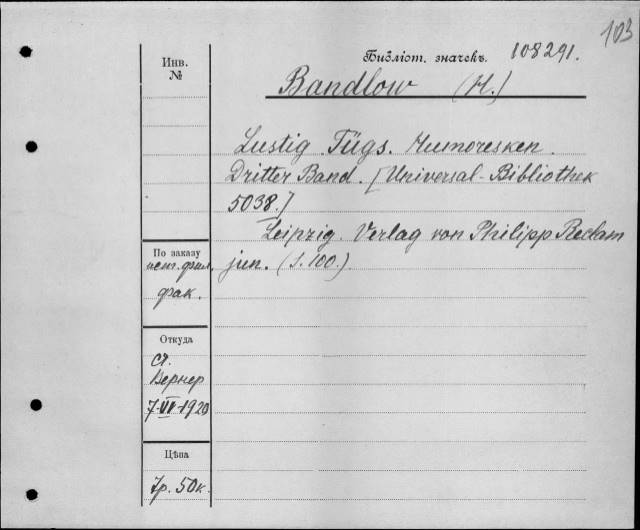 103
Библіот. значекъ. 108291.
Инв.
№
Bandlow (H.)
Lustig Tügs. Humoresken.
Dritter Band. [Universal-Bibliothek
5038.]
Leipzig. Verlag von Philipp Reclam
jun. (S. 100.)
По заказу
ист. фил.
фак.
Откуда
ст.
Вернер
7-VI-1920
Цѣна
7р. 50к.